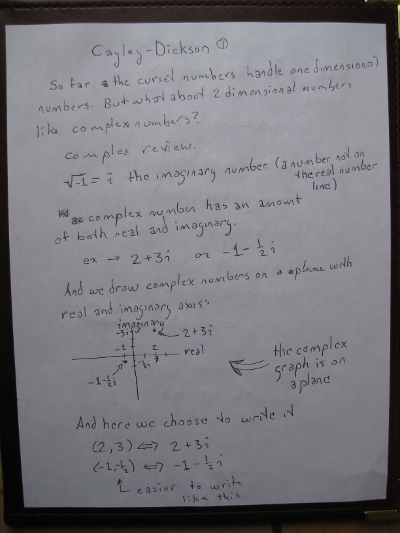 Cayley-Dickson ①
So far the cursed numbers handle one dimensional
numbers. But what about 2 dimensional numbers
like complex numbers?
Complex review.
√-1 = i the imaginary number (a number not on
the real number
line)
a complex number has an amount
of both real and imaginary.
ex → 2+3i or -1-½i
And we draw complex numbers on a plane with
real and imaginary axis:
imaginary
-3i 2+3i
-1 2 real
-½i
-1-½i
the complex
graph is on
a plane
And here we choose to write it
(2,3) ⇔ 2+3i
(-1,-½) ⇔ -1-½i
easier to write
like this